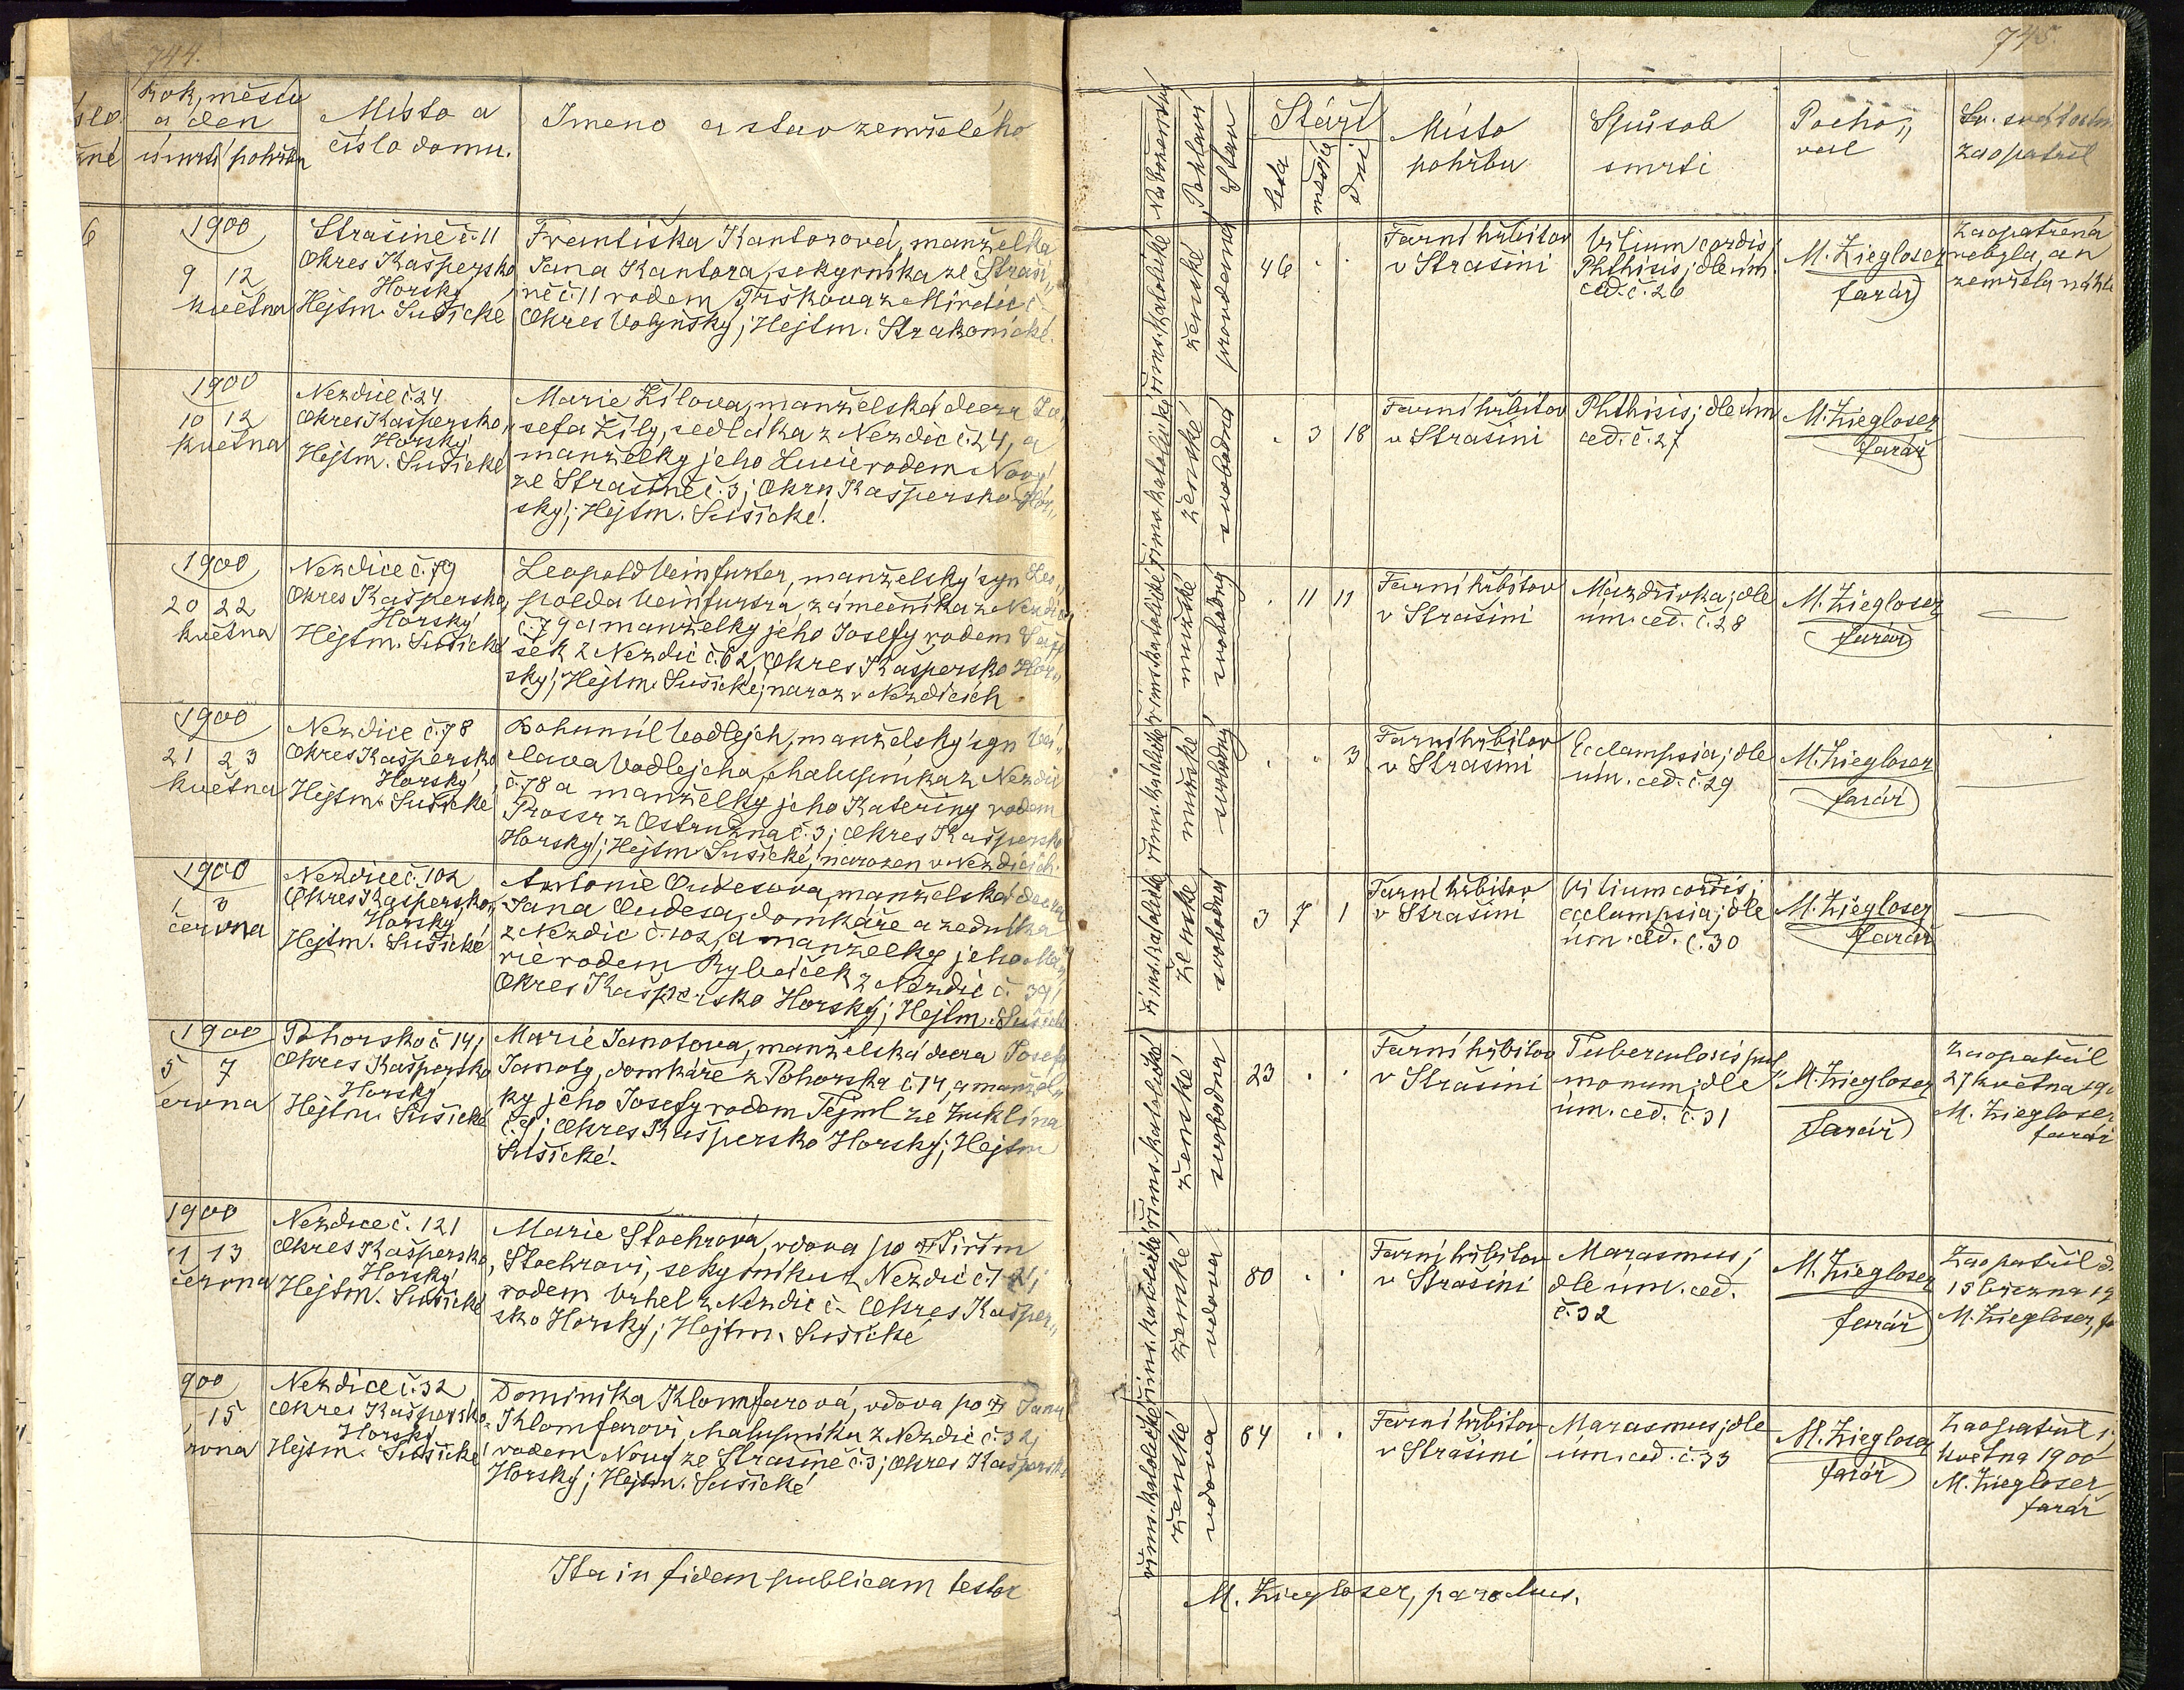 744.
Rok, měsíc
a den
úmrtí pohřbu
Místo a
číslo domu.
Jmeno a stav zemřelého
6
1900
9 12
května
Strašině č. 11
Okres Kašpersko
Horský
Hejtm. Sušické
Františka Kantorová, manželka
Jana Kantora, sekyrníka ze Straši„
ně č. 11 rodem Trškova z Mirdic č.
Okres Volyňský; Hejtm. Strakonické.
1900
10 12
května
Nezdice č. 24
Okres Kašpersko„
Horský
Hejtm. Sušické
Marie Žílova, manželská dcera Jo„
sefa Žíly, sedláka z Nezdic č. 24, a
manželky jeho Lucie rodem Nový
ze Strašině č. 3; Okres Kašpersko Hor„
ský; Hejtm. Sušické.
1900
20 22
května
Nezdice č. 79
Okres Kašpersko„
Horský
Hejtm. Sušické
Leopold Veinfurter, manželský syn Leo„
polda Veinfurtra, zámečníka z Nezdic
č. 79 a manželky jeho Josefy, rodem
šek z Nezdic č. 62, Okres Kašpersko Hor„
ský; Hejtm. Sušické; naroz v Nezdicích
1900
21 23
května
Nezdice č. 78
Okres Kašpersko
Horský
Hejtm. Sušické
Bohumil Vodlejch, manželský syn Vá„
clava Vodlejcha, chalupníka z Nezdic
č. 78 a manželky jeho Kateřiny rodem
Prossr z Ostružna č. 3; Okres Kašpersko
Horský; Hejtm. Sušické, narozen v Nezdicích.
1900
1 3
června
Nezdice č. 102
Okres Kašpersko„
Horský
Hejtm. Sušické
Antonie Oudesova, manželská dcera
Jana Oudesa, domkáře a zedníka
z Nezdic č. 102, a manželky jeho Ma„
rie rodem Rybáček z Nezdic č. 39;
Okres Kašpersko Horský; Hejtm. Sušické
1900
5 7
června
Pohorsko č. 14;
Okres Kašpersko
Horský
Hejtm. Sušické
Marie Janotova, manželská dcera Josefa
Janoty, domkáře z Pohorska č. 14, a manžel„
ky jeho Josefy rodem Tejml ze Žuklína
č. 9; Okres Kašpersko Horský; Hejtm
Sušické.
1900
11 13
června
Nezdice č. 121
Okres Kašpersko
Horský
Hejtm. Sušické
Marie Stoehrová, vdova po † Jiřím
Stoehrovi, sekyrníku z Nezdic č. 121;
rodem Vrhel z Nezdic č. Okres Kašper„
sko Horský; Hejtm. Sušické
900
15
rvna
Nezdice č. 32
Okres Kašpersko„
Horský
Hejtm. Sušické
Dominika Klomfarová, vdova po † Janu
Klomfarovi, chalupníku z Nezdic č. 32;
rodem Nový ze Strašině č. 3; Okres Kašpersko
Horský; Hejtm. Sušické
Ita in fidem publicam testor
745.
Náboženství
Pohlaví
Stav
Stáří
leta
měsíce
dni
Místo
pohřbu
Spůsob
smrti
Pocho„
val
Sv. svátostmi
zaopatřil
říms. katolické
ženské
provdaná
46 . .
Farní hřbitov
v Strašíni
Vitium cordis;
Phthisis; dle úm.
ced. č. 26
M. Ziegloser
farář
Zaopatřena
nebyla, an
zemřela náhle
říms. katolické
ženské
svobodná
. 3 18
Farní hřbitov
v Strašíni
Phthisis; dle úm
ced. č. 27
M. Ziegloser
farář
říms. katolické
mužské
svobodný
. 11 11
Farní hřbitov
v Strašíni
Mázdřivka; dle
úm. ced. č. 28
M. Ziegloser
farář
říms. katolické
mužské
svobodný
. . 3
Farní hřbitov
v Strašíni
Ecclampsia; dle
úm. ced. č. 29
M. Ziegloser
farář
říms. katolické
ženské
svobodná
3 7 1
Farní hřbitov
v Strašíni
Vitium cordis;
ecclampsia; dle
úm. ced. č. 30
M. Ziegloser
farář
říms. katolické
ženské
svobodna
23 . .
Farní hřbitov
v Strašíni
Tuberculosis pul„
monum; dle
úm. ced. č. 31
M. Ziegloser
farář
Zaopatřil
27 května 190
M. Ziegloser
farář
říms. katolické
ženské
vdova
80 . .
Farní hřbitov
v Strašíni
Marasmus;
dle úm. ced.
č. 32
M. Ziegloser
farář
Zaopatřil d.
15 března 19
M. Ziegloser, fa
říms. katolické
ženské
vdova
84 . .
Farní hřbitov
v Strašíni
Marasmus; dle
úm. ced. č. 33
M. Ziegloser
farář
Zaopatřil
května 1900
M. Ziegloser
farář
M. Ziegloser, parochus.